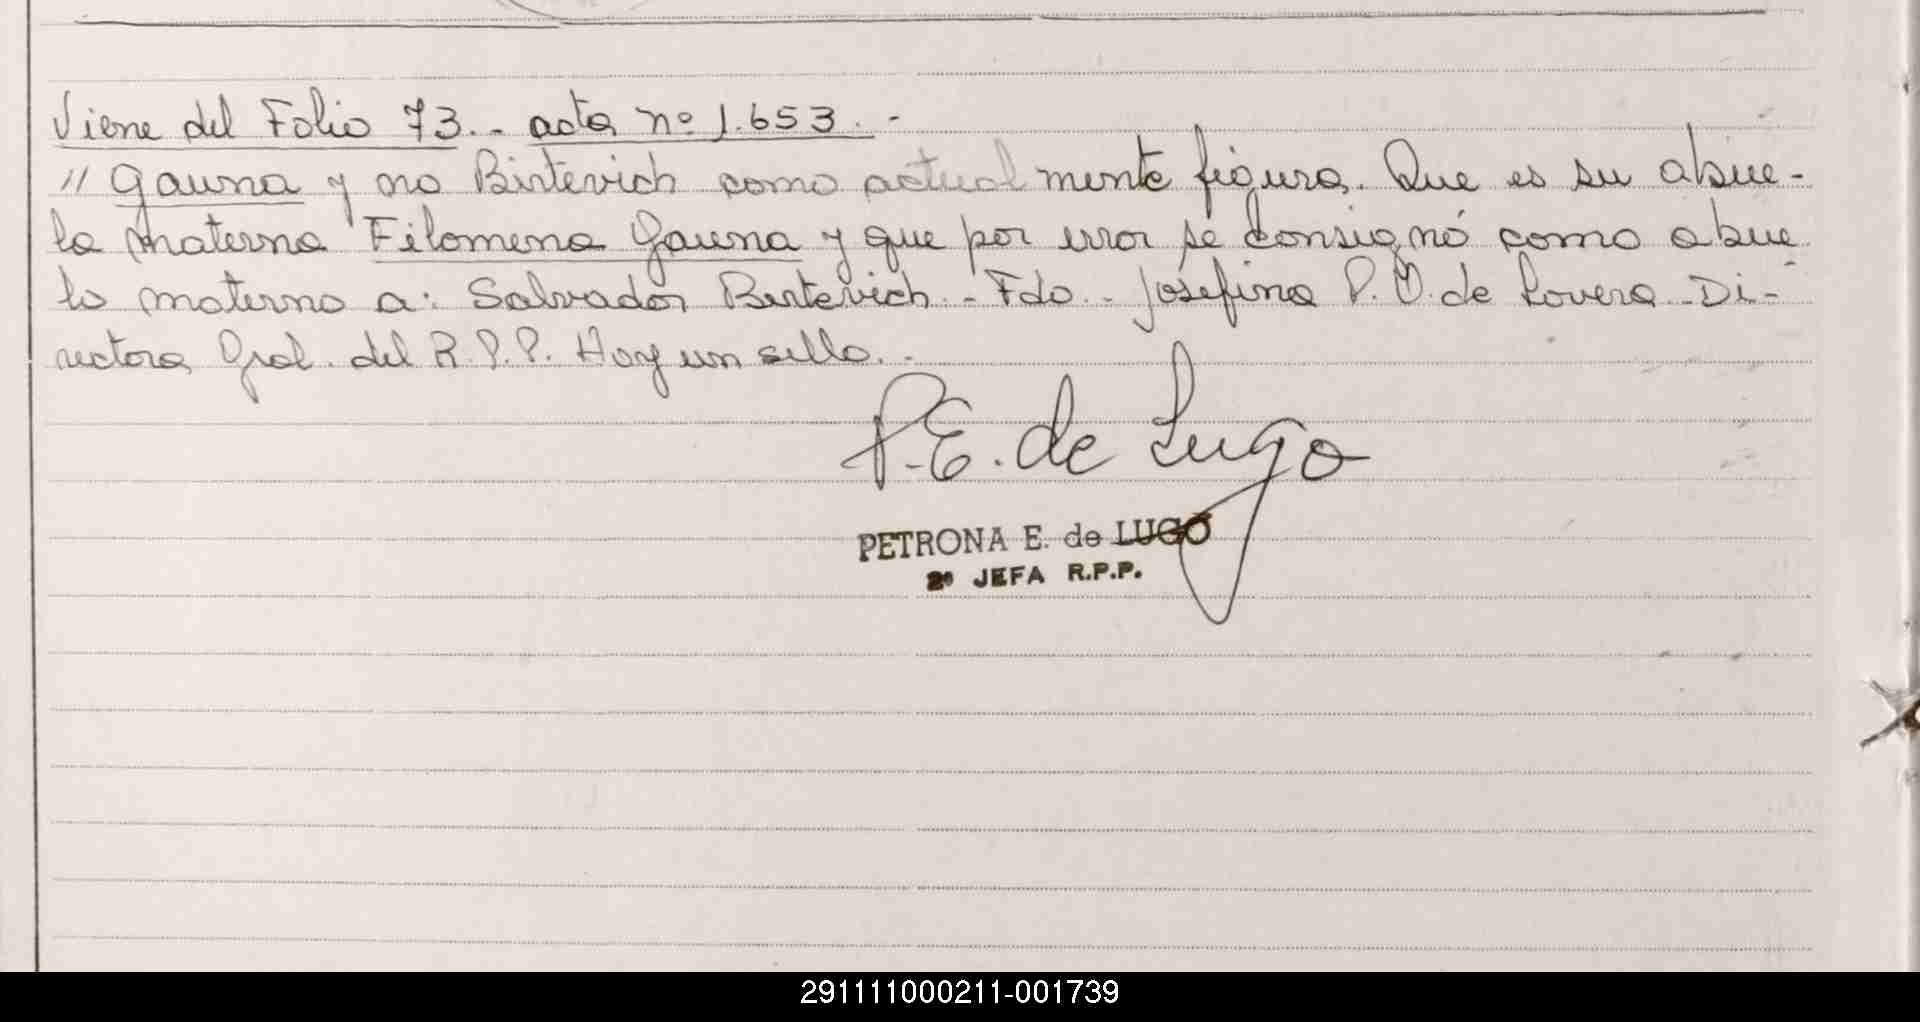 Viene del Folio 73.- acta nº 1.653.-
// Gauna y no Birtevich como actualmente figura. Que es su abue-
la materna Filomena Gauna y que por error se consignó como abue
lo materno a: Salvador Birtevich.- Fdo.- Josefina P. O. de Lovera - Di-
rectora Gral. del R.P.P. Hay un sello.-
P.E. de Lugo
PETRONA E. de LUGO
2ª JEFA R.P.P.
291111000211-001739